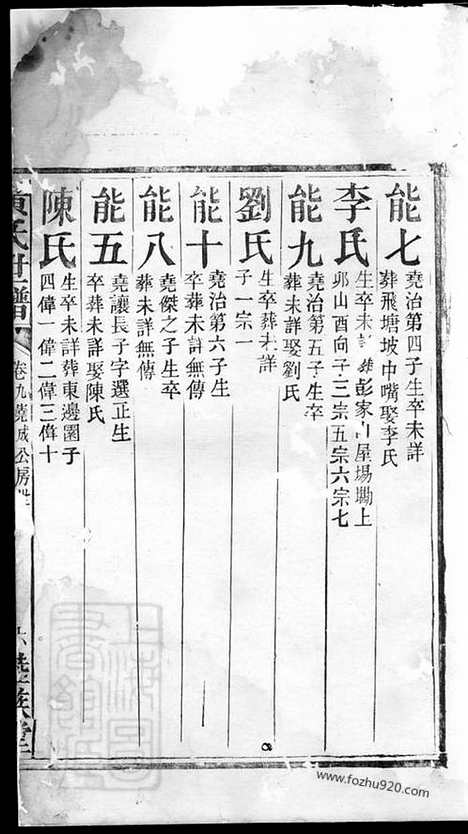 能七
堯治第四子生卒未詳
葬飛塘坡中嘴娶李氏
李氏
生卒未 彭家 屋場墈上
卯山酉向子三宗五宗六宗七
能九
堯治第五子生卒
葬未詳娶劉氏
劉氏
生卒葬未詳
子一宗一
能十
堯治第六子生
卒葬未詳無傳
能八
堯傑之子生卒
葬未詳無傳
能五
堯讓長子字選正生
卒葬未詳娶陳氏
陳氏
生卒未詳葬東邊園子
四偉一偉二偉三偉十
氏世譜
卷九 公房
六
堂
www.fozhu920.com